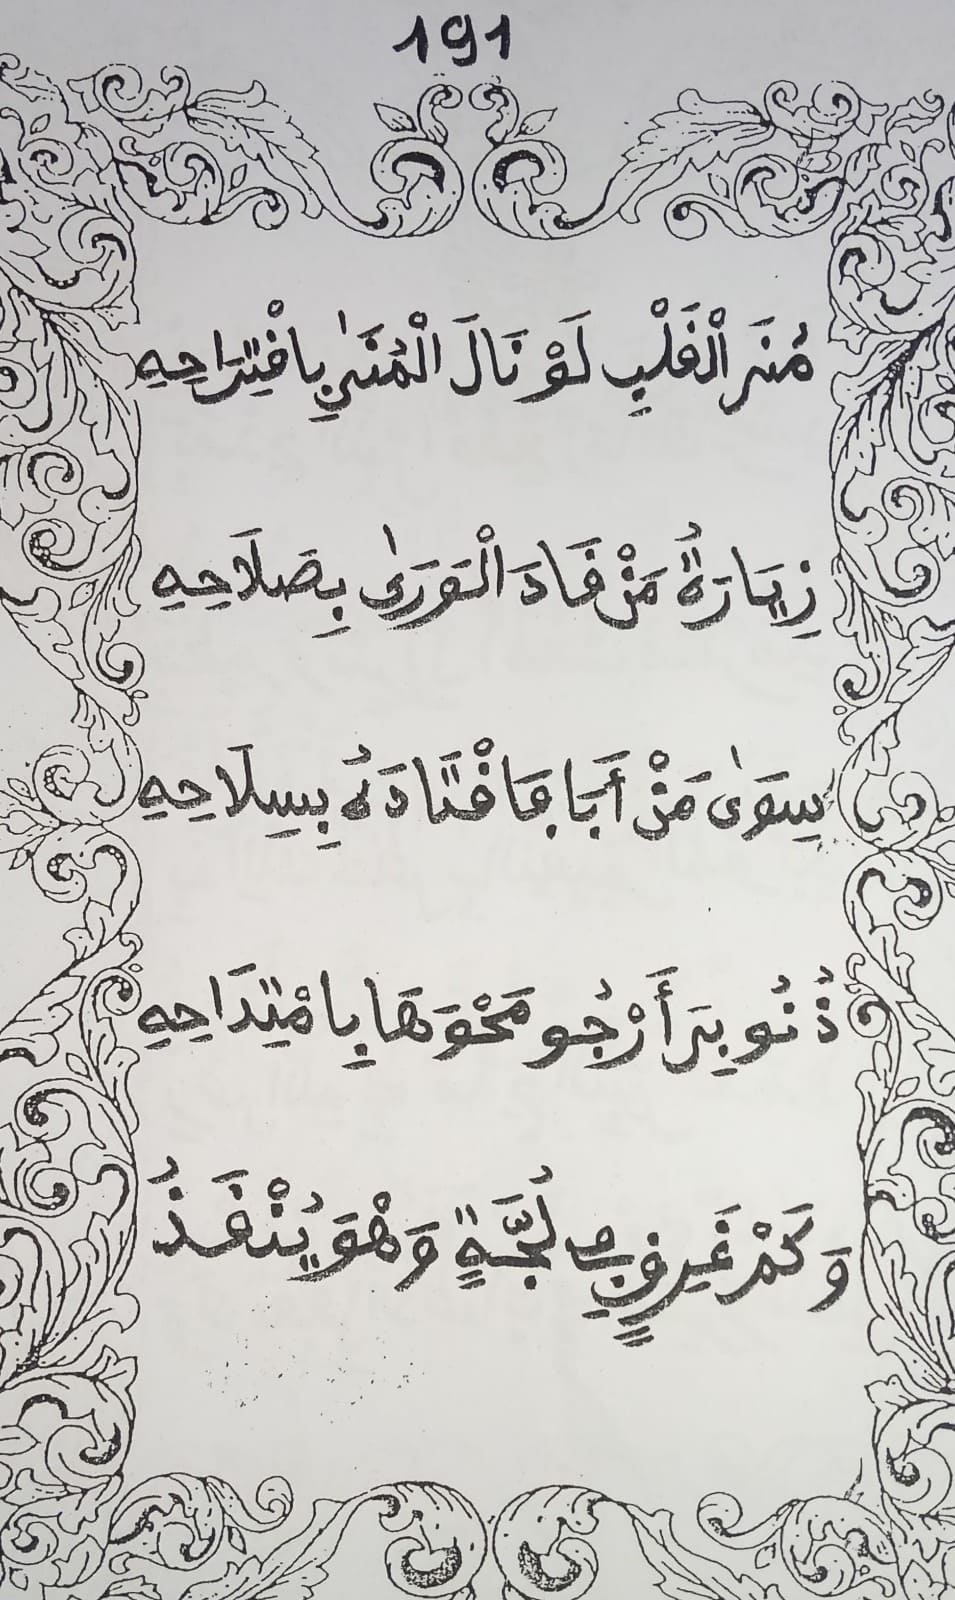 191
مُنَى الْقَلْبِ لَوْ نَالَ الْمُنَىٰ بِاقْتِرَاحِهِ
زِيَارَةُ مَنْ قَادَ الْوَرَىٰ بِصَلَاحِهِ
سِوَىٰ مَنْ أَبَا فَاقْتَادَهُ بِسِلَاحِهِ
ذُنُوبِيَ أَرْجُو مَحْوَهَا بِامْتِدَاحِهِ
وَكَمْ غَرِقٍ فِي لُجَّةٍ وَهْوَ يُنْقَذُ